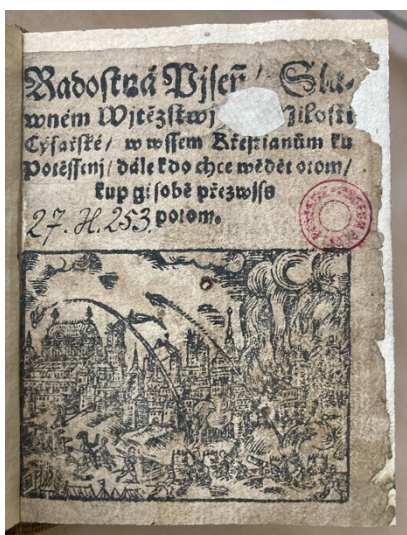 Radostná Pjseň / Sla-
wném Wjtězstwj Milosti
Cýsařské / w wssem Křestianům ku
Potěssenj / dále kdo chce wědět otom /
kup gi sobě přezwjss
27. H. 253. potom.